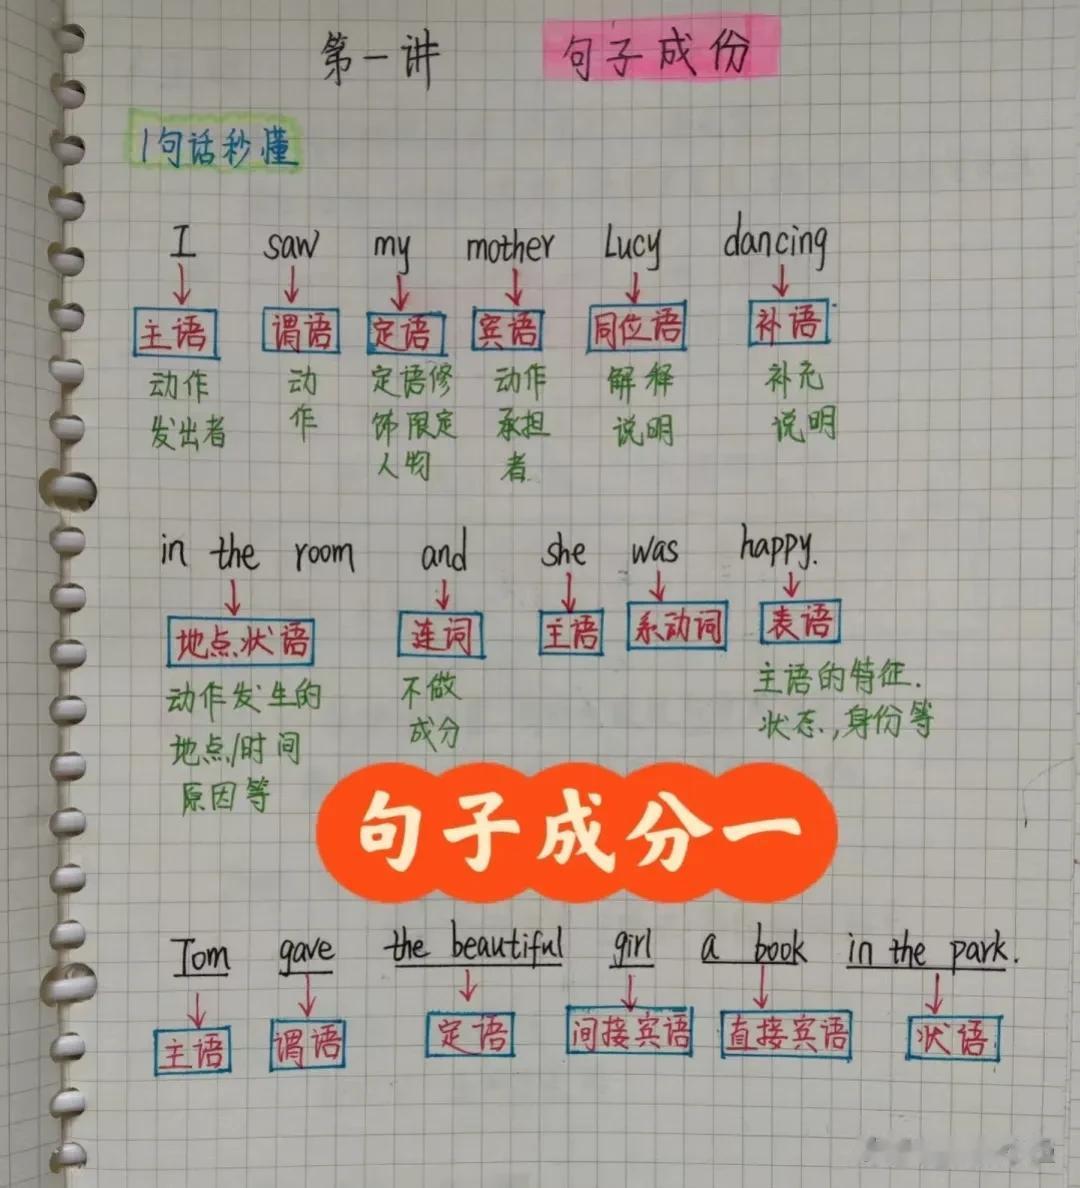 第一讲 句子成份
1句话秒懂
I saw my mother Lucy dancing
主语 谓语 定语 宾语 同位语 补语
动作 动 定语修 动作 解释 补充
发出者 作 饰限定 承担 说明 说明
人物 者
in the room and she was happy.
地点状语 连词 主语 系动词 表语
动作发生的 不做 主语的特征.
地点/时间 成分 状态,身份等
原因等
句子成分一
Tom gave the beautiful girl a book in the park.
主语 谓语 定语 间接宾语 直接宾语 状语